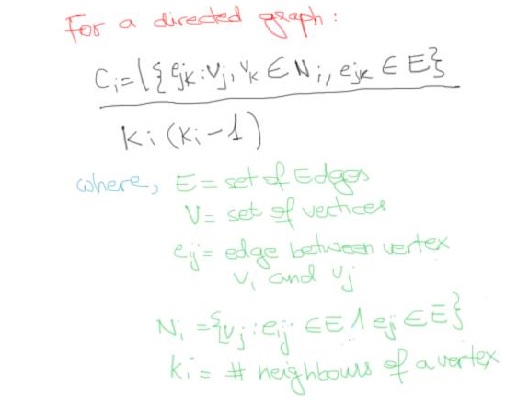 For a directed graph:
Ci=|{ejk:vj,vk∈Ni,ejk∈E}
Ki(Ki-1)
where, E= set of Edges
V= set of vertices
eij= edge between vertex
vi and vj
Ni={vj:eij∈E1ej∈E}
Ki= # neighbours of a vertex